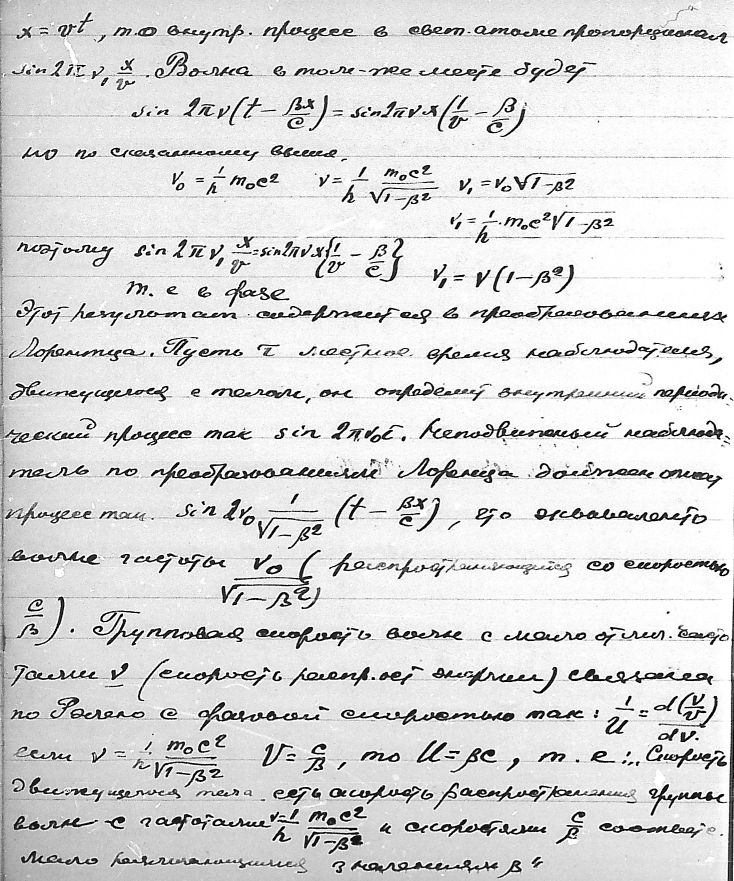 x = vt, т.о внутр. процесс в свет. атоме пропорционал
sin 2π ν₁ x/v. Волна в том-же месте будет
sin 2πν(t − βx/c) = sin 2πνx(1/v − β/c)
но по сказанному выше,
ν₀ = 1/h m₀c² ν = 1/h m₀c²/√(1−β²) ν₁ = ν₀√(1−β²)
ν₁ = 1/h · m₀c²√(1−β²)
поэтому sin 2πν₁ x/v = sin 2πνx{1/v − β/c} ν₁ = ν(1−β²)
т. е в фазе
Этот результат содержится в преобразованиях
Лорентца. Пусть τ местное время наблюдателя,
движущегося с телом, он определит внутренний периоди-
ческий процесс так sin 2πν₀τ. Неподвижный наблюда-
тель по преобразованиям Лоренца должен описат
процесс так. sin 2ν₀ 1/√(1−β²) (t − βx/c), это эквивалентно
волне частоты ν₀/√(1−β²) (распространяющейся со скоростью
c/β). Групповая скорость волн с мало отлич. часто
тами ν (скорость распр.ост энергии) связана
по Релею с фазовой скоростью так: 1/U = d(ν/v)/dν.
если ν = 1/h m₀c²/√(1−β²) V = c/β, то U = βc, т. е: „Скорость
движущегося тела есть скорость распространения группы
волн с частотами ν = 1/h m₀c²/√(1−β²) и скоростями c/β соответс.
мало различающимся значениям β"